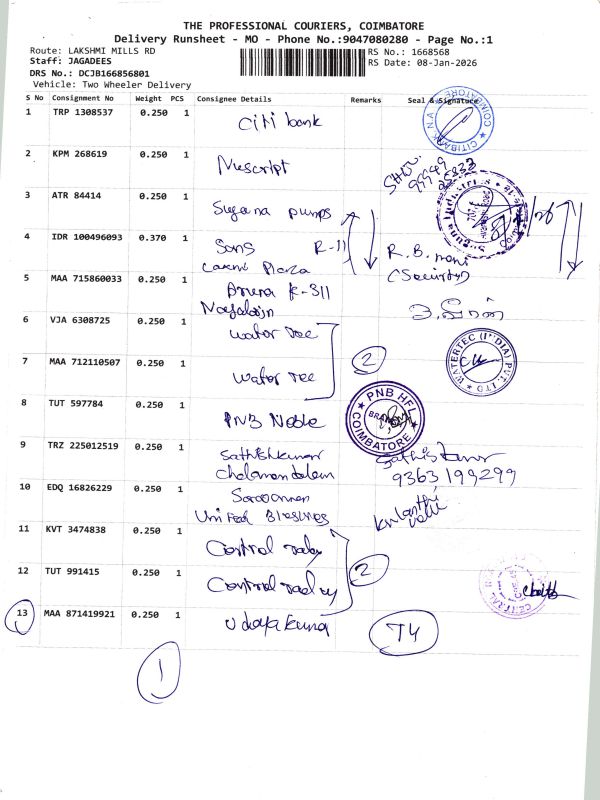 THE PROFESSIONAL COURIERS, COIMBATORE
Delivery Runsheet - MO - Phone No.:9047080280 - Page No.:1
Route: LAKSHMI MILLS RD
RS No.: 1668568
Staff: JAGADEES
RS Date: 08-Jan-2026
DRS No.: DCJB166856801
Vehicle: Two Wheeler Delivery
S No Consignment No Weight PCS Consignee Details Remarks Seal & Signature
1 TRP 1308537 0.250 1 Citi bank
CITIBANK N.A. COIMBATORE
2 KPM 268619 0.250 1
99949
25833
3 ATR 84414 0.250 1 Suguna pumps
4 IDR 100496093 0.370 1 Sons R-11
R. B. mani
(Security)
Laxmi Plaza
5 MAA 715860033 0.250 1 K-311
6 VJA 6308725 0.250 1 water tec
7 MAA 712110507 0.250 1 water tec
2
WATERTEC (INDIA) PVT. LTD
8 TUT 597784 0.250 1 PNB
PNB HFL
BRANCH
COIMBATORE
9 TRZ 225012519 0.250 1 Sathishkumar
9363199299
10 EDQ 16826229 0.250 1
United
11 KVT 3474838 0.250 1 Control
12 TUT 991415 0.250 1 Control
2
CENTRAL
13 MAA 871419921 0.250 1 Udaya kumar
T4
1